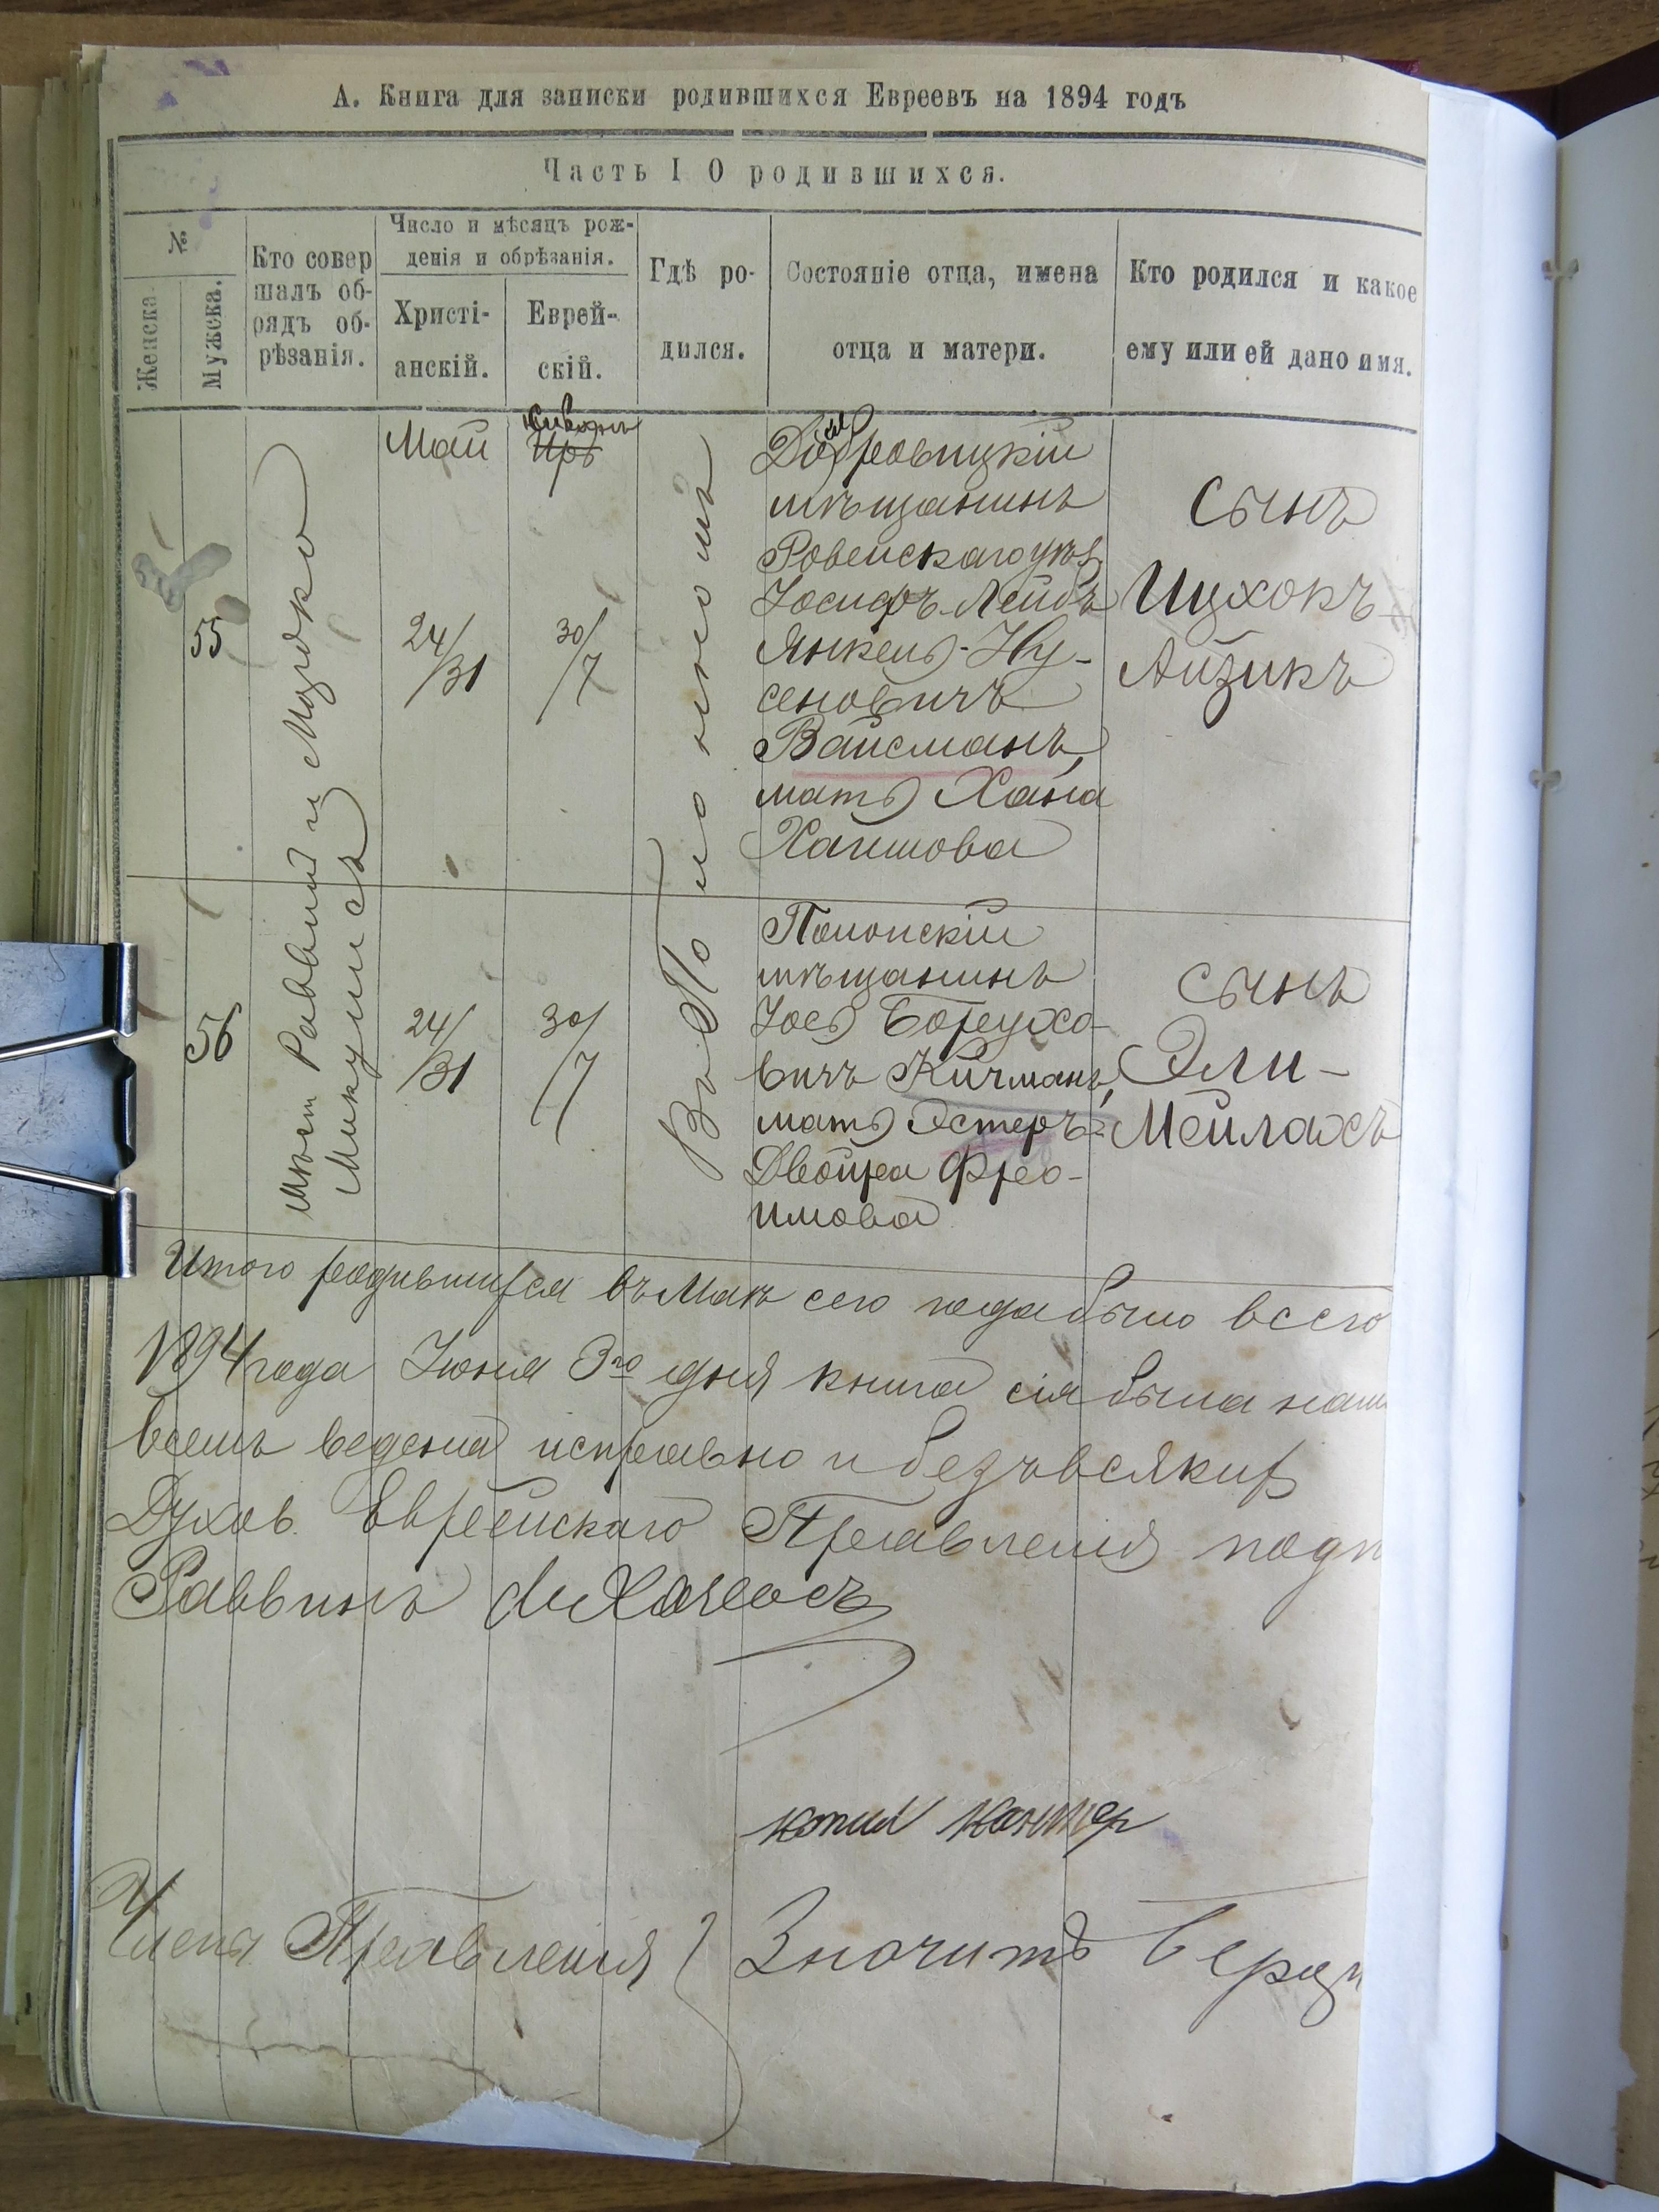 А. Книга для записки родившихся Евреевъ на 1894 годъ
Часть I О родившихся.
№
Женска.
Мужска.
Кто совер
шалъ об-
рядъ об-
рѣзанія.
Число и мѣсяцъ рож-
денія и обрѣзанія.
Христі-
анскій.
Еврей-
скій.
Гдѣ ро-
дился.
Состояніе отца, имена
отца и матери.
Кто родился и какое
ему или ей дано имя.
Май
Сивонъ
Иръ
55
Мѣст Раввинъ и Мазроко
Микулисъ
24/
/31
30/
/7
Въ Полонномъ
мѣщанинъ
Ровенскаго уѣз
Іосифъ-Лейбъ
Янкель-Ну-
сеновичъ
Вайсманъ,
мать Хана
Хаимова
Сынъ
Ицхокъ-
Айзикъ
56
24/
/31
30/
/7
Полонскій
мѣщанинъ
Іось Борухо-
вичъ Кичманъ,
мать Эстеръ-
Двойра Фрео-
имова
Сынъ
Эли-
Мейлахъ
Итого родившихся въ Маѣ сего года было всего
1894 года Іюня 3го дня книга сія была нами
всемъ ведена исправно и безъ всякихъ
Духов. Еврейскаго Правленія подп
Раввинъ
Кантер
Члены Правленія
Значитъ